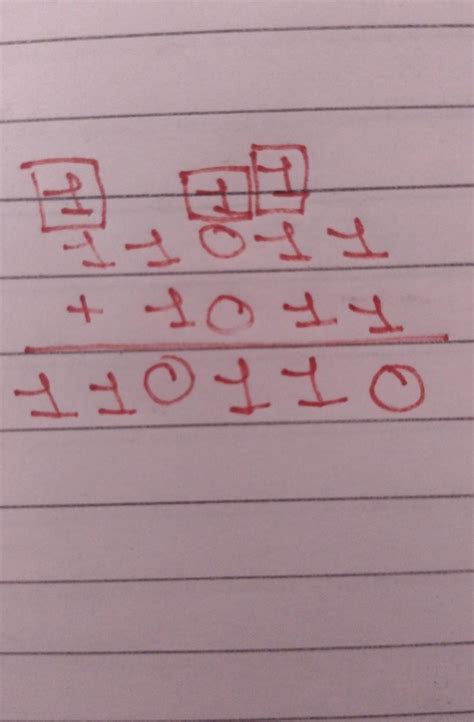 1 1 1
1 1 0 1 1
+ 1 0 1 1
1 1 0 1 1 0